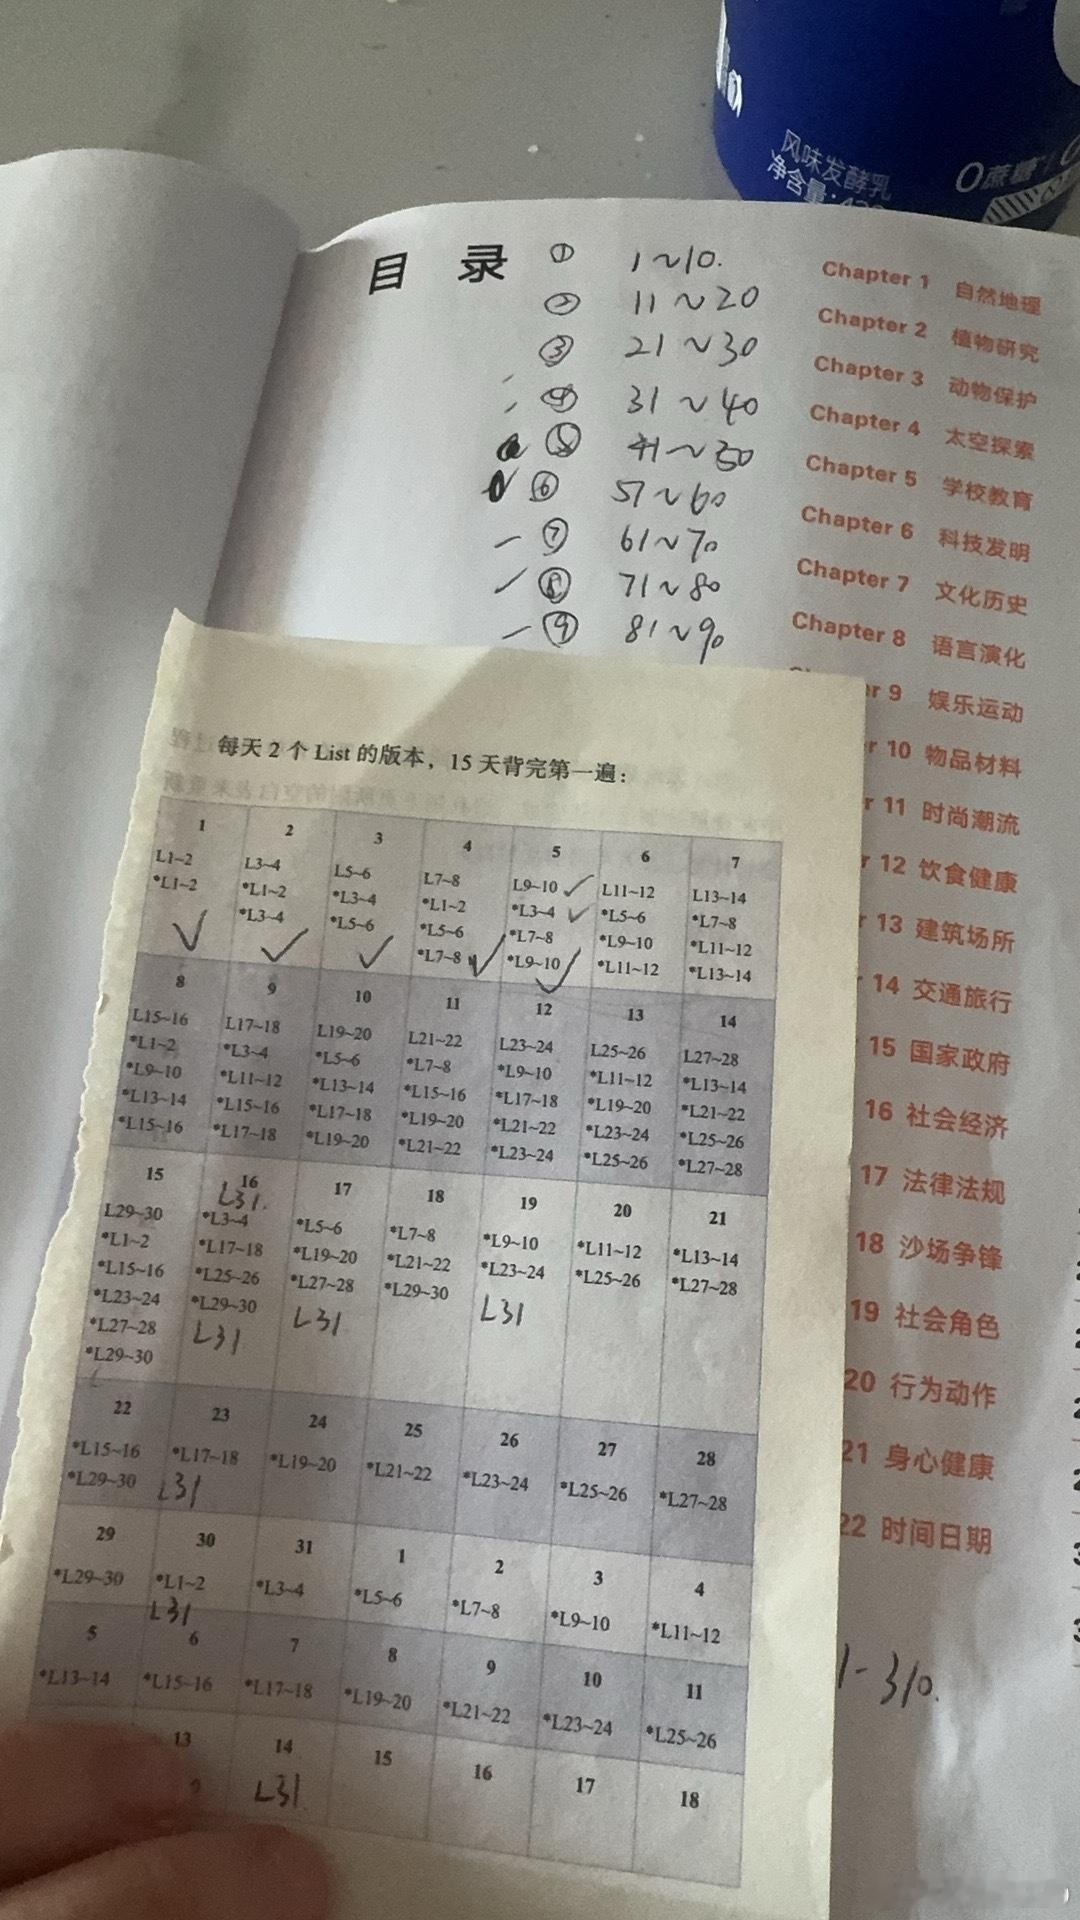 风味发酵乳
净含量:
0蔗糖
目 录
① 1~10.
② 11~20
③ 21~30
④ 31~40
⑤ 41~50
⑥ 51~60
⑦ 61~70
⑧ 71~80
⑨ 81~90
Chapter 1 自然地理
Chapter 2 植物研究
Chapter 3 动物保护
Chapter 4 太空探索
Chapter 5 学校教育
Chapter 6 科技发明
Chapter 7 文化历史
Chapter 8 语言演化
r 9 娱乐运动
r 10 物品材料
r 11 时尚潮流
r 12 饮食健康
r 13 建筑场所
14 交通旅行
15 国家政府
16 社会经济
17 法律法规
18 沙场争锋
19 社会角色
20 行为动作
21 身心健康
22 时间日期
1-310.
每天 2 个 List 的版本，15 天背完第一遍：
1 2 3 4 5 6 7
L1~2 L3~4 L5~6 L7~8 L9~10 ✓ L11~12 L13~14
*L1~2 *L1~2 *L3~4 *L1~2 *L3~4 ✓ *L5~6 *L7~8
*L3~4 *L5~6 *L5~6 *L7~8 *L9~10 *L11~12
*L7~8 *L9~10 *L11~12 *L13~14
8 9 10 11 12 13 14
L15~16 L17~18 L19~20 L21~22 L23~24 L25~26 L27~28
*L1~2 *L3~4 *L5~6 *L7~8 *L9~10 *L11~12 *L13~14
*L9~10 *L11~12 *L13~14 *L15~16 *L17~18 *L19~20 *L21~22
*L13~14 *L15~16 *L17~18 *L19~20 *L21~22 *L23~24 *L25~26
*L15~16 *L17~18 *L19~20 *L21~22 *L23~24 *L25~26 *L27~28
15 16 17 18 19 20 21
L31.
L29~30 *L3~4 *L5~6 *L7~8 *L9~10 *L11~12 *L13~14
*L1~2 *L17~18 *L19~20 *L21~22 *L23~24 *L25~26 *L27~28
*L15~16 *L25~26 *L27~28 *L29~30 L31
*L23~24 *L29~30 L31
*L27~28 L31
*L29~30
22 23 24 25 26 27 28
*L15~16 *L17~18 *L19~20 *L21~22 *L23~24 *L25~26 *L27~28
*L29~30 L31
29 30 31 1 2 3 4
*L29~30 *L1~2 *L3~4 *L5~6 *L7~8 *L9~10 *L11~12
L31
5 6 7 8 9 10 11
*L13~14 *L15~16 *L17~18 *L19~20 *L21~22 *L23~24 *L25~26
13 14 15 16 17 18
L31